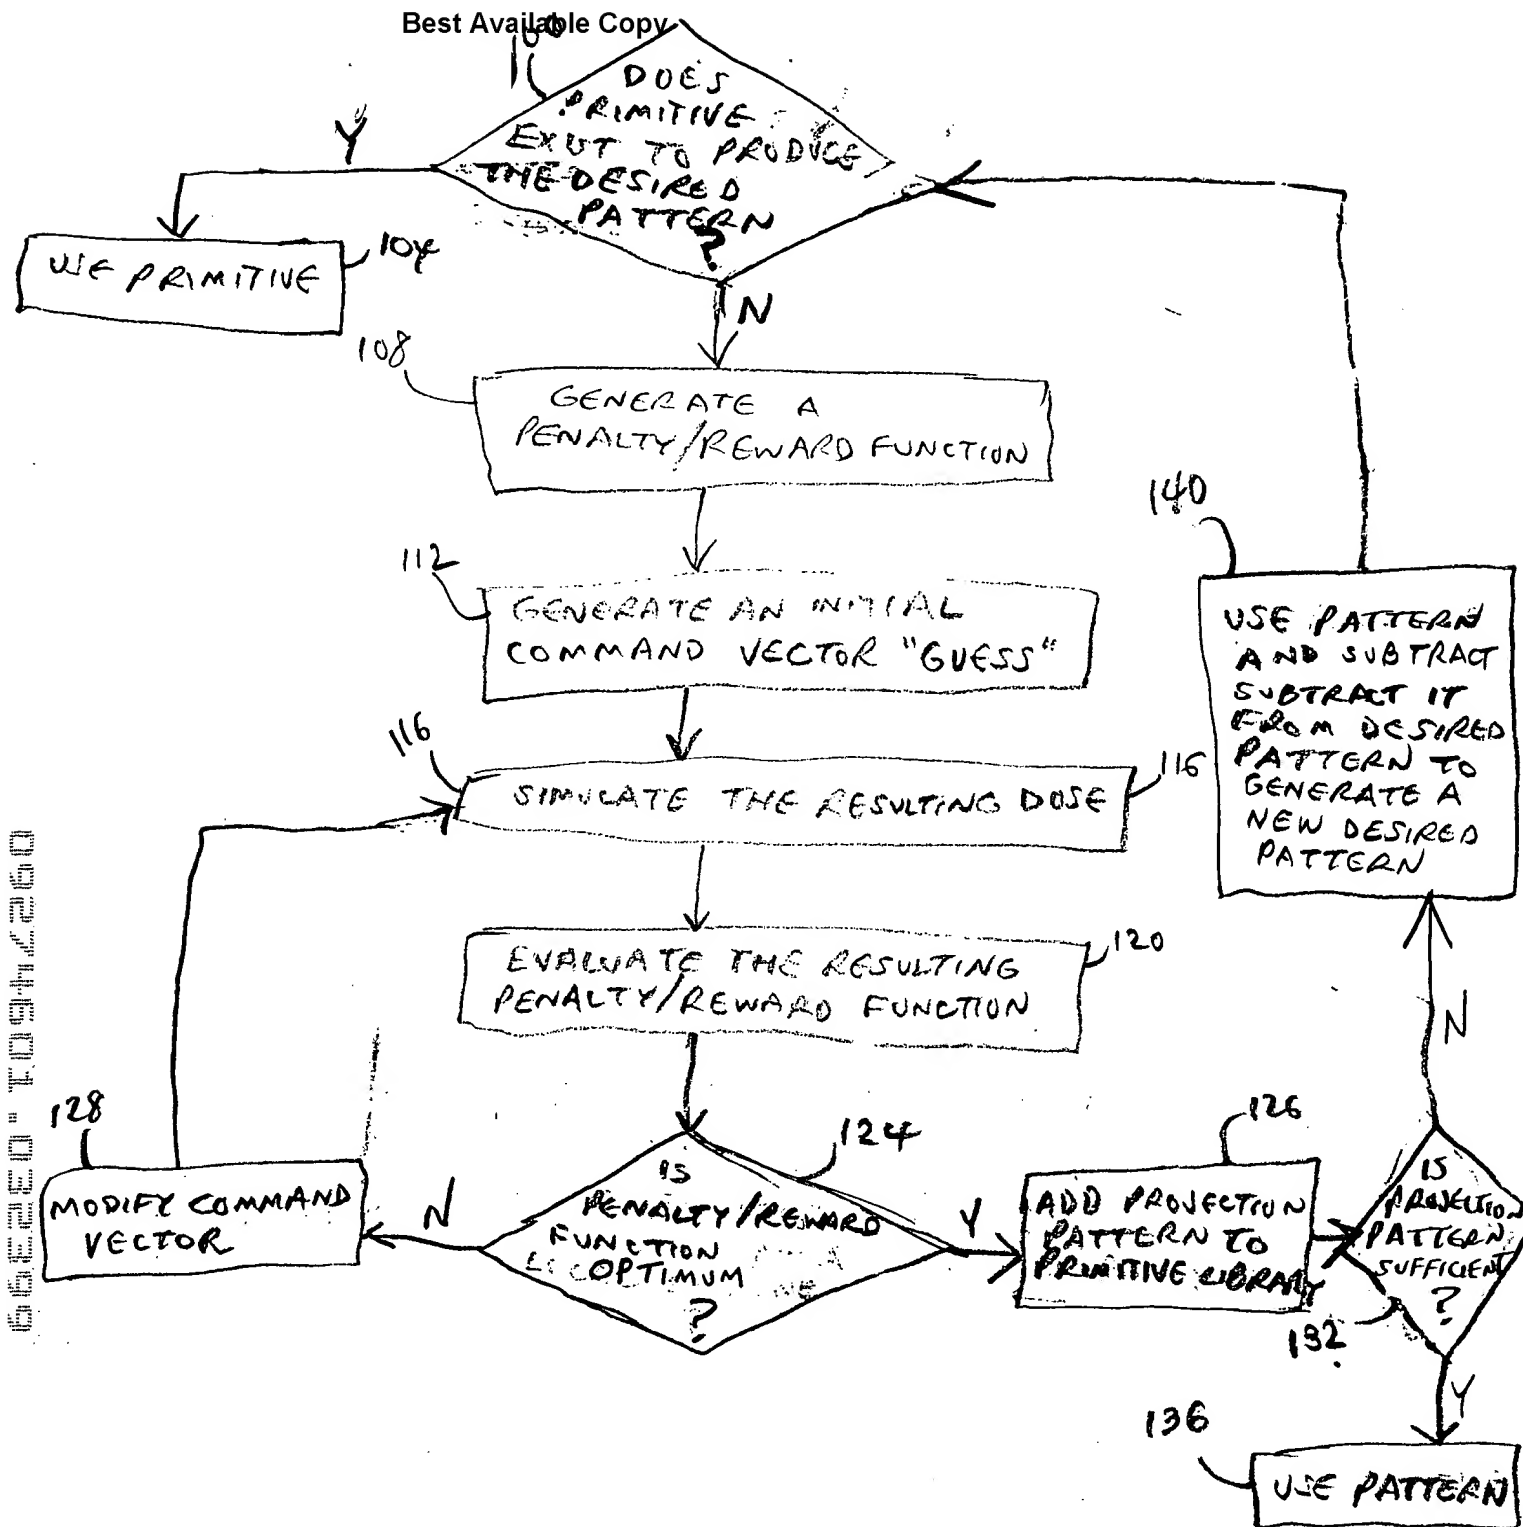 Best Available Copy
100
DOES
PRIMITIVE
EXIST TO PRODUCE
THE DESIRED
PATTERN
?
Y
N
USE PRIMITIVE
104
108
GENERATE A
PENALTY/REWARD FUNCTION
112
GENERATE AN INITIAL
COMMAND VECTOR "GUESS"
116
SIMULATE THE RESULTING DOSE
116
EVALUATE THE RESULTING
PENALTY/REWARD FUNCTION
120
124
IS
PENALTY/REWARD
FUNCTION
OPTIMUM
?
N
128
MODIFY COMMAND
VECTOR
Y
126
ADD PROJECTION
PATTERN TO
PRIMITIVE LIBRARY
IS
PROJECTION
PATTERN
SUFFICIENT
?
132
N
140
USE PATTERN
AND SUBTRACT
SUBTRACT IT
FROM DESIRED
PATTERN TO
GENERATE A
NEW DESIRED
PATTERN
Y
136
USE PATTERN
09274601.032399